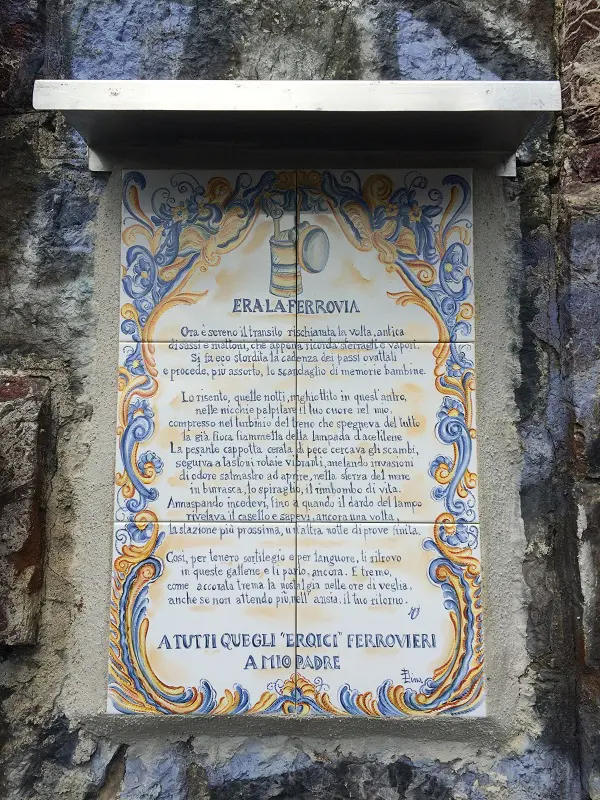 ERA LA FERROVIA
Ora è sereno il transito rischiarata la volta, antica
di sassi e mattoni, che appena ricorda sferragli e vapori.
Si fa eco stordita la cadenza dei passi ovattati
e procede, più assorto, lo scandaglio di memorie bambine.
Lo risento, quelle notti, inghiottito in quest'antro,
nelle nicchie palpitare il tuo cuore nel mio,
compresso nel turbinio del treno che spegneva del tutto
la già fioca fiammetta della lampada d'acetilene
La pesante cappotta cerata di pece cercava gli scambi,
seguiva a tastoni rotaie vibranti, anelando invasioni
di odore salmastro ad aprire, nella sferza del mare
in burrasca, lo spiraglio, il rimbombo di vita.
Annaspando incedevi, fino a quando il dardo del lampo
rivelava il casello e sapevi, ancora una volta,
la stazione più prossima, un'altra notte di prove finita.
Così, per tenero sortilegio e per languore, ti ritrovo
in queste gallerie e ti parlo, ancora. E tremo,
come accorata trema la nostalgia nelle ore di veglia,
anche se non attendo più, nell'ansia, il tuo ritorno.
A TUTTI QUEGLI "EROICI" FERROVIERI
A MIO PADRE